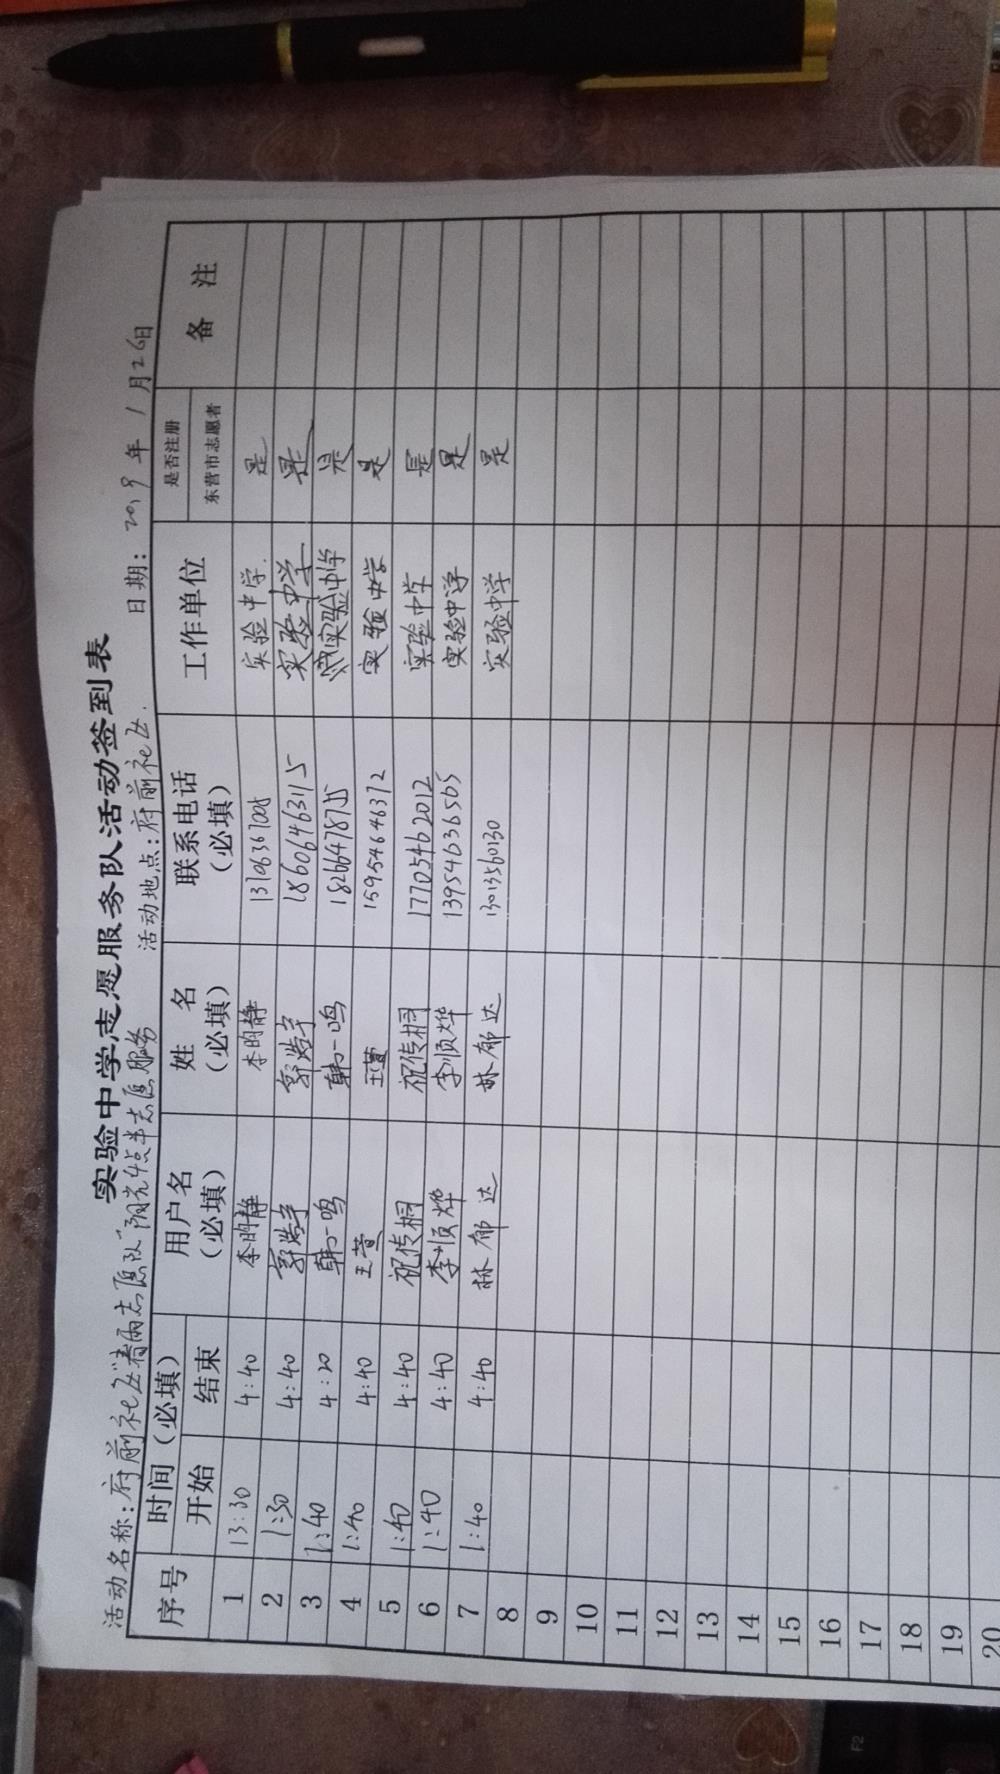 实验中学志愿服务队活动签到表
活动名称：府前社区"春雨志愿队"阳光4点半志愿服务 活动地点：府前社区. 日期：2019年1月26日
序号 时间（必填） 用户名（必填） 姓名（必填） 联系电话（必填） 工作单位 是否注册东营市志愿者 备注
开始 结束
1 13:30 4:40 李昀静 李昀静 实验中学. 是
2 1:30 4:40 郭浩宇 郭浩宇 18606463115 实验中学 是
3 1:40 4:20 韩一鸣 韩一鸣 实验中学 是
4 1:40 4:40 王萱 王萱 15954646372 实验中学 是
5 1:40 4:40 祝传桐 祝传桐 17705462012 实验中学 是
6 1:40 4:40 李顺烨 李顺烨 13954636565 实验中学 是
7 1:40 4:40 林郁达 林郁达 实验中学 是
8
9
10
11
12
13
14
15
16
17
18
19
20
F2